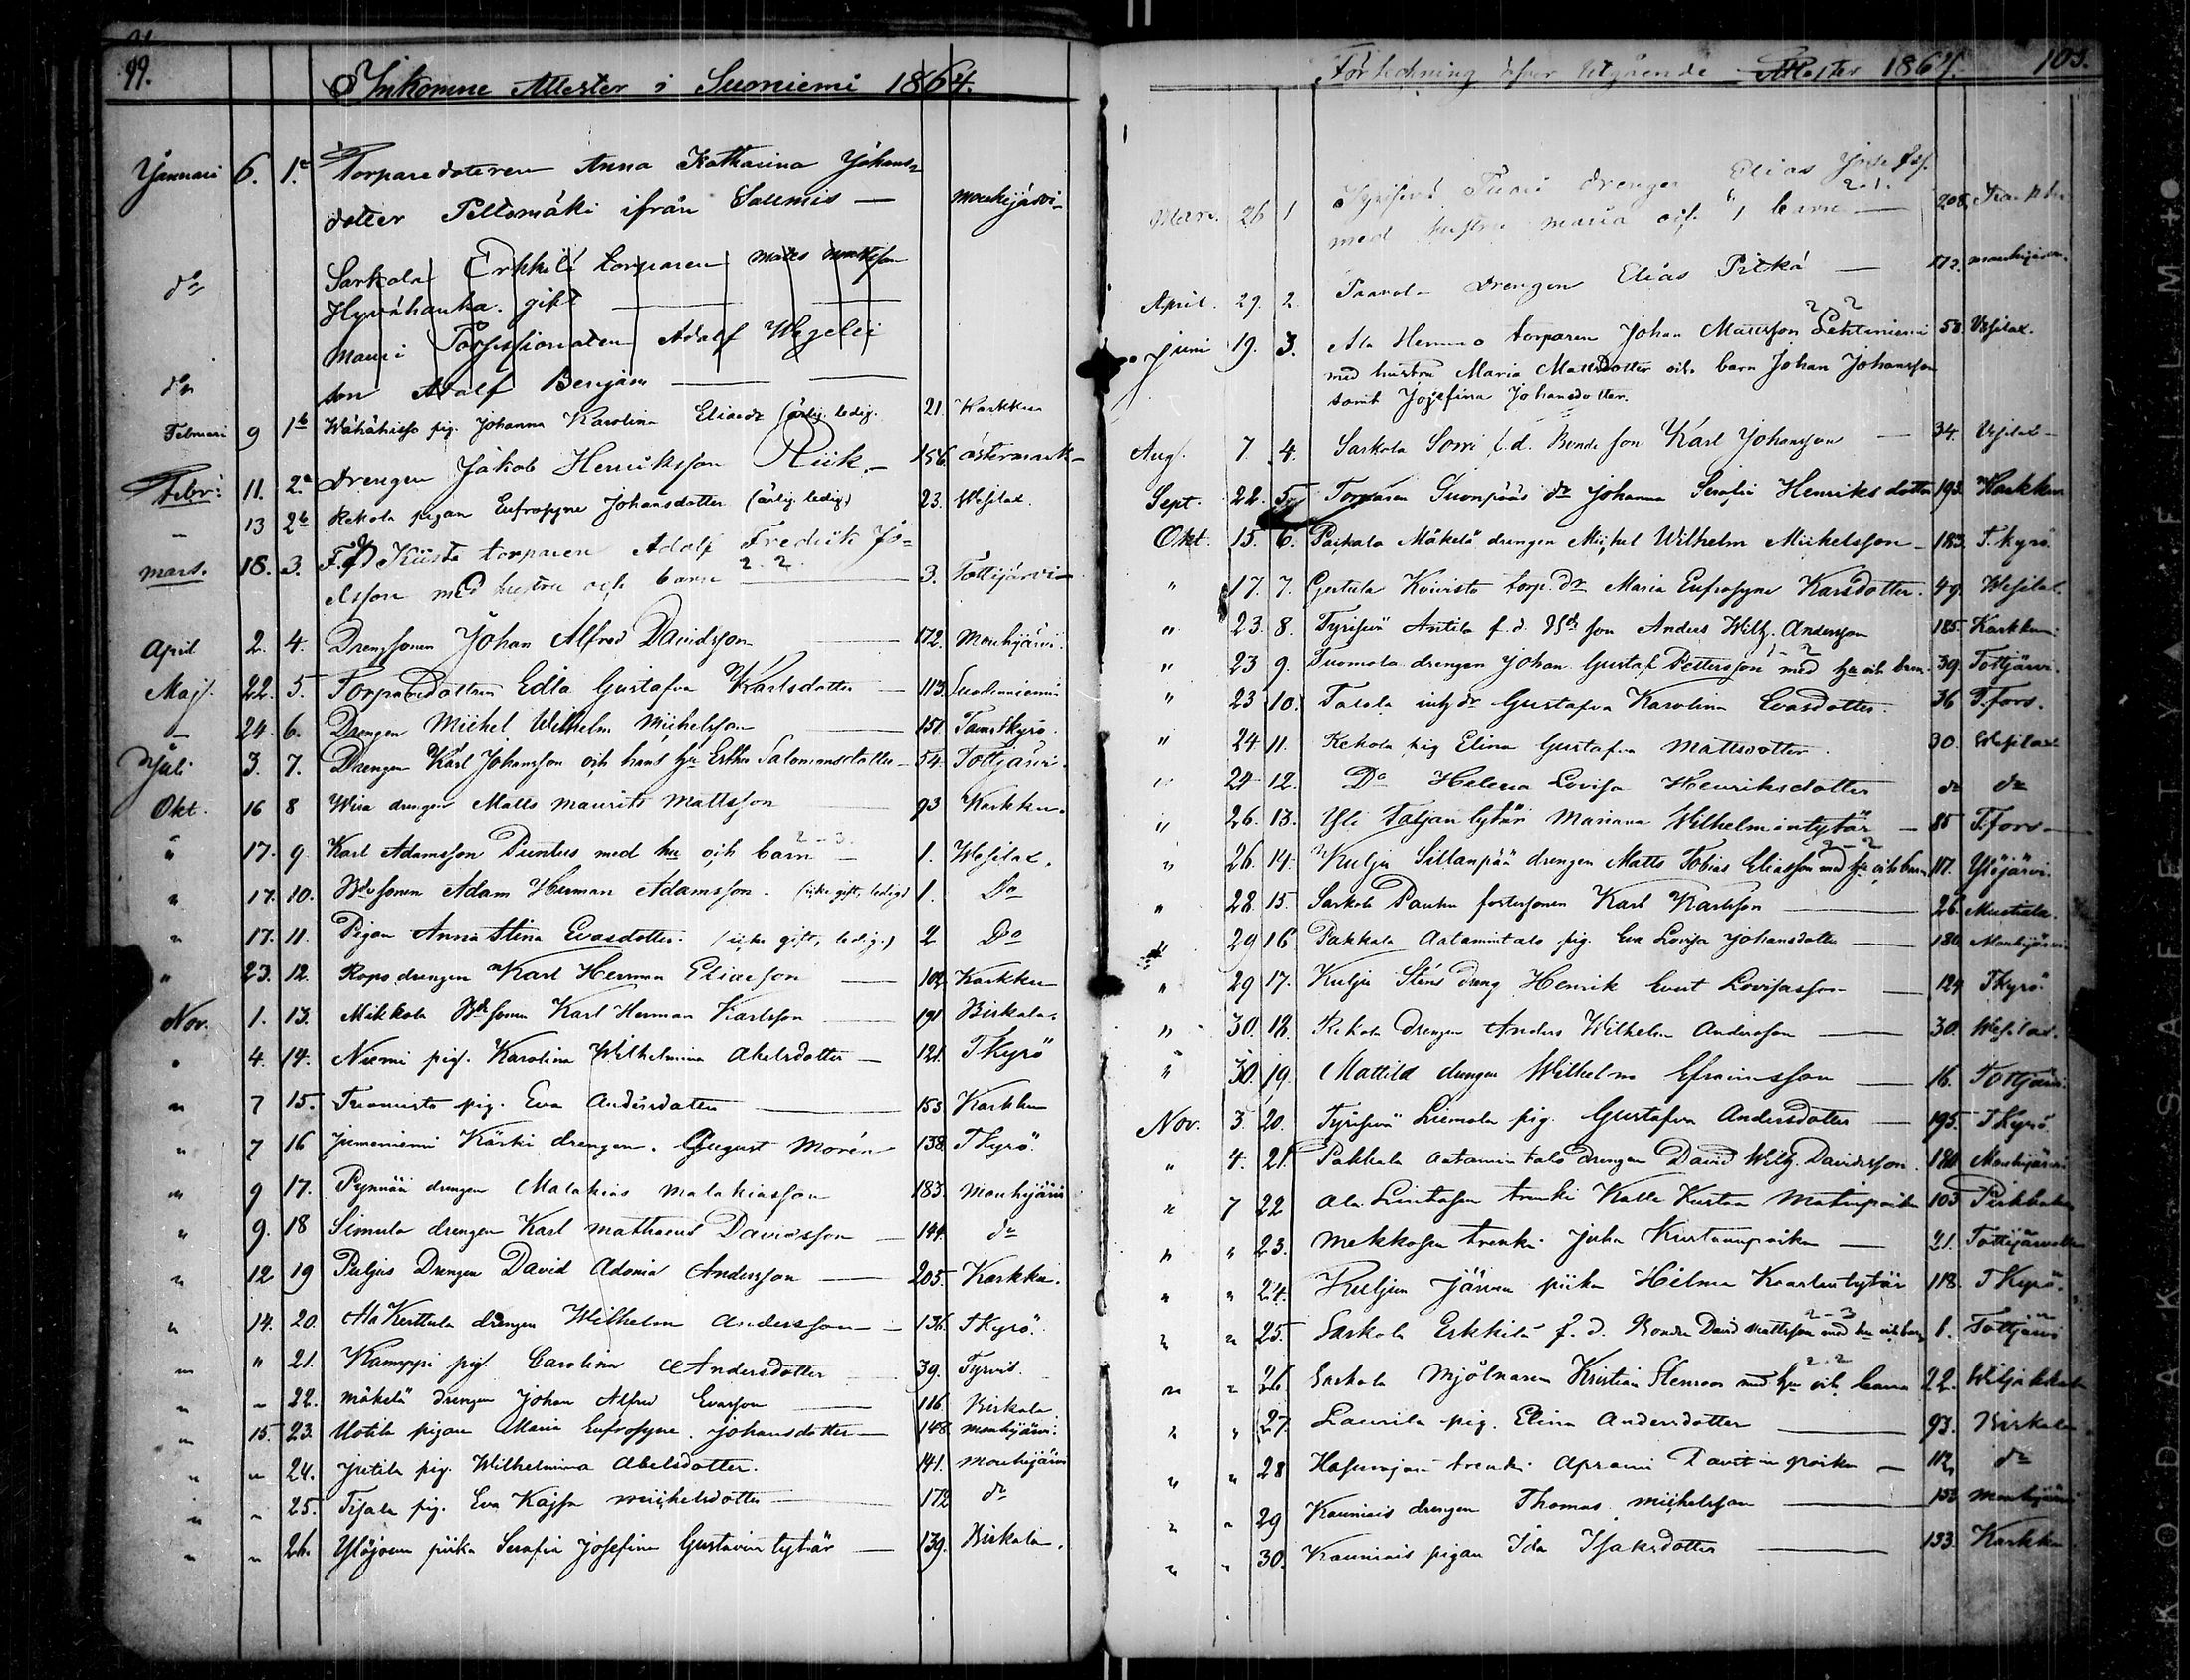 99.
Inkomne Attester i Suoniemi 1864.
Januari 6. 1.a Torparedotteren Anna Katharina Johans-
dotter Peltomäki ifrån Salmis — Mouhijärvi
do Sarkola Erkkilä torparen Matts Mattsson
Hyvähanka. gift —
do Mauri Adolf
son Adolf Benjam —
Februari 9 1b Wähähissa pig. Johanna Karolina Eliasdr (ärlig. ledig. 21. Karkku
Febr: 11. 2.a Drengen Jakob Henriksson Riik. — 156. Östermark —
" 13 2b Rekola pigan Eufrosyne Johansdotter (ärlig ledig) 23. Wesilax.
Mars. 18. 3. F.d. Kiista torparen Adolf Fredrik Jo-
elsson med hustru och barn 2.2. — 3. Tottijärvi —
April 2. 4. Drengsonen Johan Alfred Davidsson — 172. Mouhijärvi.
Maj. 22. 5. Torparedottren Edla Gustafva Karlsdotter — 113. Suodenniemi
— 24. 6. Drengen Mickel Wilhelm Mickelsson — 151. Tavastkyro.
Juli 3. 7. Drengen Karl Johansson och hans hu Esther Salomonsdotter — 54. Tottijärvi.
Okt. 16 8 Wira drengen Matts Maurits Mattsson — 93 Karkku.
" 17. 9. Karl Adamsson Puntus med hu och barn 2-3. — 1. Wesilax.
" 17. 10. Bdesonen Adam Herman Adamsson. (icke gift, ledig) 1. Do
" 17. 11. Pigan Anna Stina Evasdotter. (icke gift, ledig.) 2. Do
" 23. 12. Ropo drengen Karl Herman Eliasson — 102. Karkku
Nov. 1. 13. Mikkola Bdesonen Karl Herman Karlsson — 191 Birkala.
" 4. 14. Niemi pig. Karolina Wilhelmina Abelsdotter — 121. T Kyrö
" 7 15. Tuomisto pig. Eva Andersdotter — 153 Karkku
" 7 16 Jumeniemi Käski drengen. August Morén 138. T Kyrö.
" 9 17. Pynnää drengen Malakias Malakiasson 183. Mouhijärvi
" 9. 18 Simula drengen Karl Mathaeus Davidsson — 144. do
" 12 19 Puljus Drengen David Adonia Andersson — 205. Karkku.
" 14. 20. Ala Kerttula drengen Wilhelm Andersson — 136. T Kyrö.
" " 21. Kamppi pig. Carolina Andersdotter 39. Tyrvis.
" " 22. Mäkelä drengen Johan Alfred Evasson — 116. Birkala
" 15. 23. Uotila pigan Maria Eufrosyne. Johansdotter — 148. Mouhijärvi.
" " 24. Jutila pig. Wilhelmina Abelsdotter. 141. Mouhijärvi
" " 25. Tisala pig. Eva Kajsa Mickelsdotter — 172 do
" " 26. Ylöjoen piika Serafia Josefina Gustavin tytär — 139. Birkala.
Förteckning öfver Utgående Attester 1864. 103.
Mars. 26 1 drengen Elias Josefss.
med hustru Maria och 1 barn 2.1. — 208.
April. 29. 2. Taavola drengen Elias Pitkä — 172. Mouhijärvi.
Juni 19. 3. Ala Hemmo torparen Johan Mattsson Lehtiniemi 2 2 58. Wesilax.
med hustru Maria Mattsdotter och barn Johan Johansson
samt Josefina Johansdotter.
Aug. 7. 4. Sarkola Sorri f.d. Bonde son Karl Johansson — 34. Wesilax —
Sept. 22. 5. Torparen Suonpääs dr Johanna Serafia Henriksdotter 193. Karkku
Okt. 15. 6. Paskala Mäkelä drengen Mickel Wilhelm Mickelsson — 183. T. kyrö
" 17. 7. Gertula Koivisto torp. dr Maria Eufrosyne Karsdotter. 49. Wesilax.
" 23. 8. Tyrisevä Antila f.d. Bde son Anders Wilh. Andersson 185. Karkku:
" 23 9. Tuomola drengen Johan Gustaf Pettersson med hu och barn. 39. Tottijärvi.
" 23 10. Talala inh dr Gustafva Karolina Evasdotter. 36 T.fors.
" 24 11. Rekola pig Elina Gustafva Mattsdotter. 30. Wesilax
" 24 12. Do Helena Lovisa Henriksdotter do do
" 26. 13. Yli Taljan tytär Mariana Wilhelmintytär — 85 T.fors —
" 26. 14. Kulju Sillanpää drengen Matts Tobias Eliasson med hu och barn 2-2 117. Ylöjärvi.
" 28. 15. Sarkola Pauhu fostersonen Karl Karlsson — 26. Mustiala.
" 29 16 Pakkala Aatamintalo pig. Eva Lovisa Johansdotter — 180. Mouhijärvi
" 29 17. Kulju Sténs dreng Henrik Evert Lovisasson — 124 T Kyrö
" 30. 18. Rekola drengen Anders Wilhelm Andersson — 30. Wesilax.
" 30. 19. Mattila drengen Wilhelm Efraimsson — 16. Tottijärvi.
Nov. 3. 20. Tyrisevä Liemola pig. Gustafva Andersdotter — 195. T Kyrö.
" 4. 21. Pakkala Aatamintalo drengen David Wilh. Davidsson. 180 Mouhijärvi
" 7 22 Ala Lintusen trenki Kalle Kustaa Matinpoika 103 Pirkkala
" " 23. Mekkosen trenki Juha Kustaanpoika — 21. Tottijärvelle
" " 24. Kuljun Järven piika Hilma Kaarlentytär 118. T Kyrö.
" " 25. Sarkola Erkkilä f.d. Bonde David Mattsson med hu och barn 2-3 1. Tottijärvi
" " 26. Sarkola Mjölnaren Kristian Stenroos med hu och barn 2.2 22. Wiljakkala
" " 27. Laurila pig. Elina Andersdotter — 93. Birkala
" " 28 trenki Aprami Taavetinpoika — 112. do
" " 29 Kauniais drengen Thomas Mickelsson — 153 Mouhijärvi
" " 30. Kauniais pigan Ida Isaksdotter — 153. Karkku
KODAK SAFETY FILM